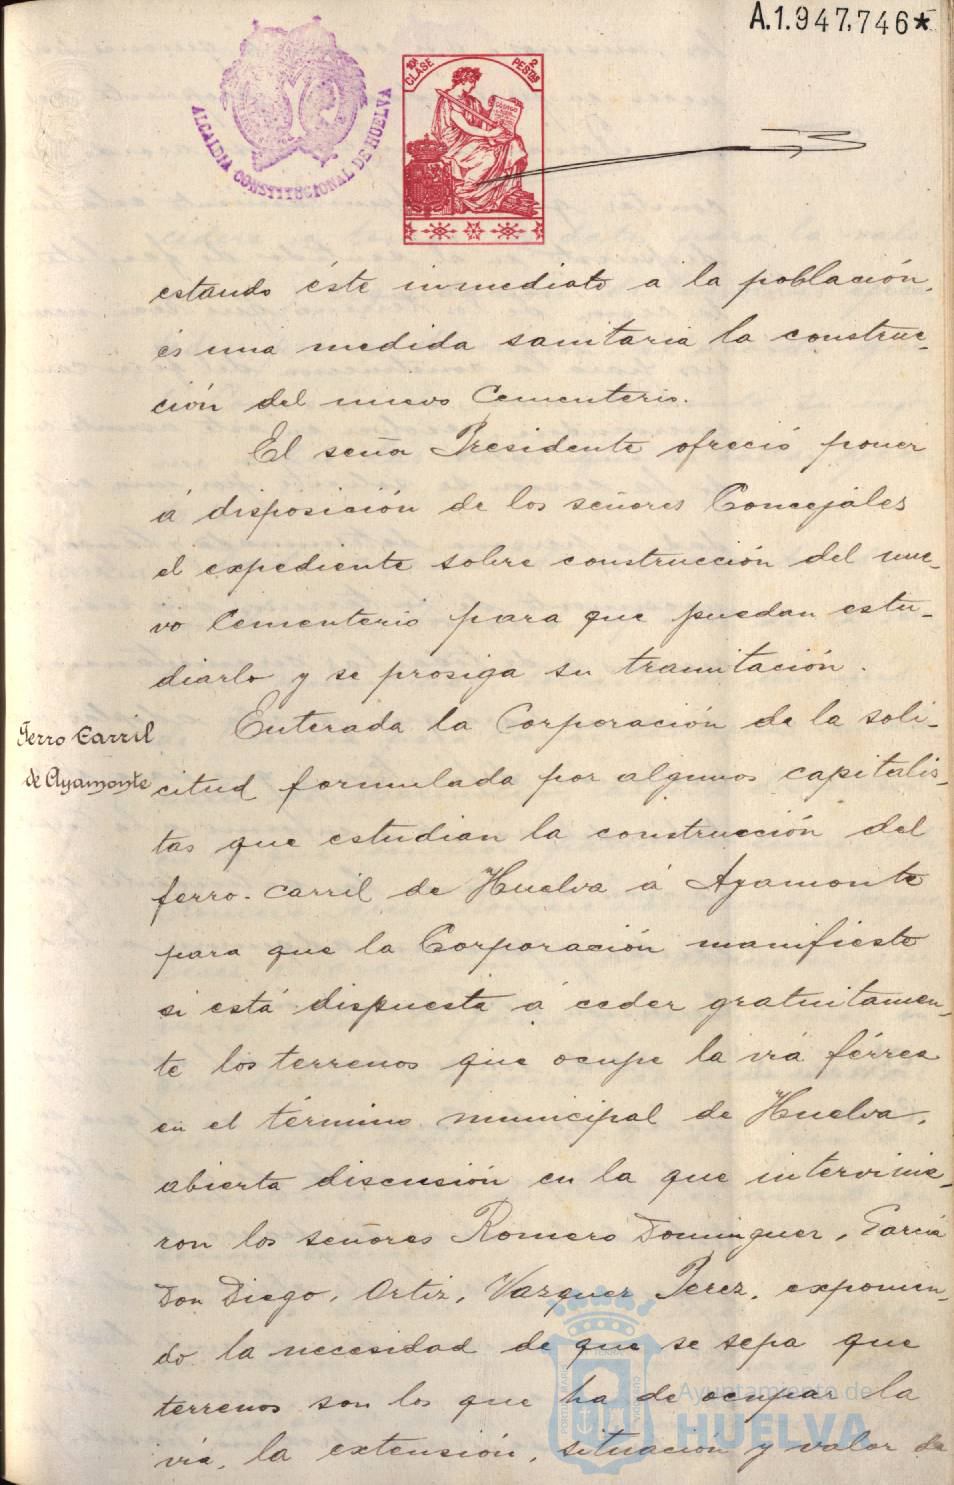 A.1.947,746*
ALCALDIA CONSTITUCIONAL DE HUELVA
10ª CLASE
2 PESTAS
estando éste inmediato a la población,
es una medida sanitaria la construc-
ción del nuevo Cementerio.
El señor Presidente ofreció poner
á disposición de los señores Concejales
el expediente sobre construcción del nue-
vo Cementerio para que puedan estu-
diarlo y se prosiga su tramitación.
Ferro Carril
de Ayamonte
Enterada la Corporación de la soli-
citud formulada por algunos capitalis-
tas que estudian la construcción del
ferro-carril de Huelva á Ayamonte
para que la Corporación manifieste
si está dispuesta á ceder gratuitamen-
te los terrenos que ocupe la vía férrea
en el término municipal de Huelva,
abierta discusión en la que intervinie-
ron los señores Romero Dominguez, García
Don Diego, Ortiz, Vazquez Perez, exponien-
do la necesidad de que se sepa que
terrenos son los que ha de ocupar la
vía, la extensión, situación y valor de
Ayuntamiento de
HUELVA